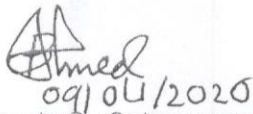 Ahmed
09/04/2020